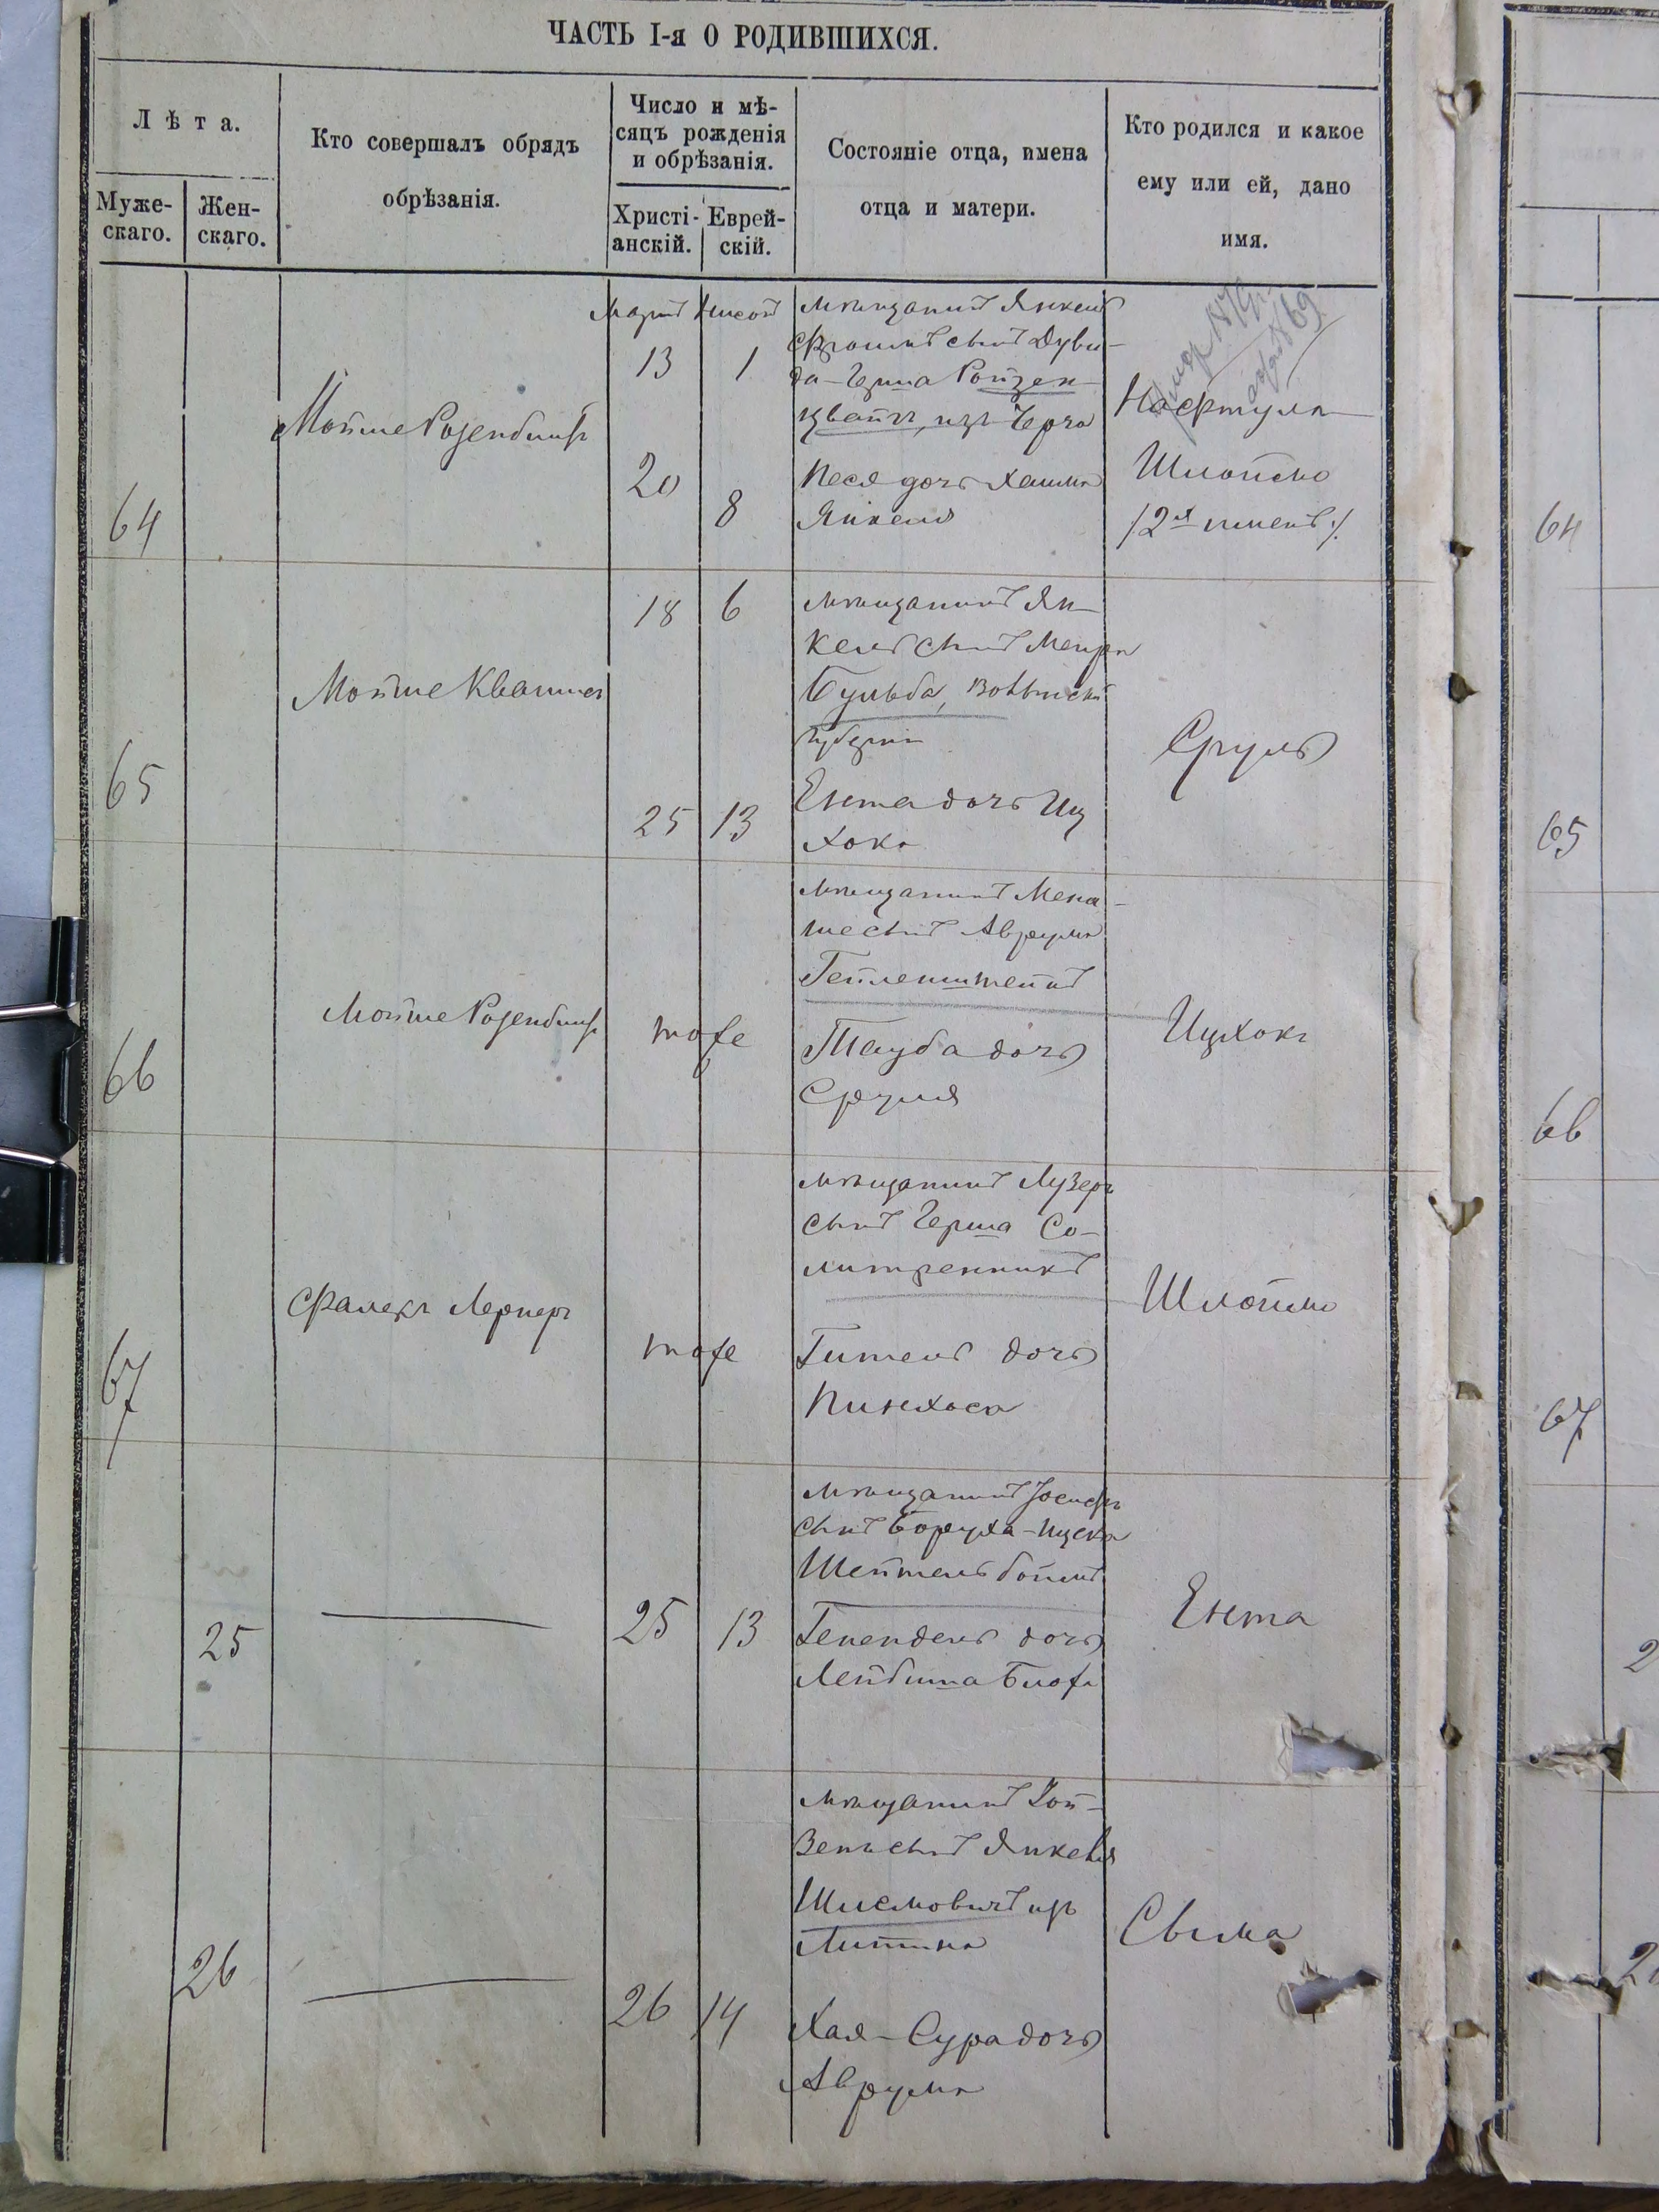 ЧАСТЬ I-я О РОДИВШИХСЯ.
Лѣта.
Муже-
скаго.
Жен-
скаго.
Кто совершалъ обрядъ
обрѣзанія.
Число и мѣ-
сяцъ рожденія
и обрѣзанія.
Христі-
анскій.
Еврей-
скій.
Состояніе отца, имена
отца и матери.
Кто родился и какое
ему или ей, дано
имя.
64
Мойше Розенблитъ
Мартъ Нисонъ
13 1
20
8
мѣщанинъ Янкель
Фроимъ сынъ Дуви-
да-Герша Ройзен-
цвайгъ, изъ
Песя дочь Хаима
Янкеля
Нафтула
Шлоймо
/2хъ именъ/.
64
65
Мойше
18 6
25 13
мѣщанинъ Ян-
кель сынъ Меира
Бульба, Волынской
губерніи
Ента дочь Иц
хока
Сруль
65
66
Мойше Розенблитъ
тоже
мѣщанинъ Мена-
ше сынъ Аврума
Гейленштейнъ
Тауба дочь
Сруля
Ицхокъ
66
67
Фалекъ Лернеръ
тоже
мѣщанинъ Лузеръ
сынъ Герша Со-
литренникъ
Гитель дочь
Пинхоса
Шлоймо
67
25
25 13
мѣщанинъ Іосифъ
сынъ Боруха-Ицска
Шейтельбоймъ
Генендель дочь
Лейбиша
Ента
2
26
26 14
мѣщанинъ Зой-
вель сынъ Янкеля
Шлемовичъ изъ
Литина
Хая-Сура дочь
Аврума
Сыма
2